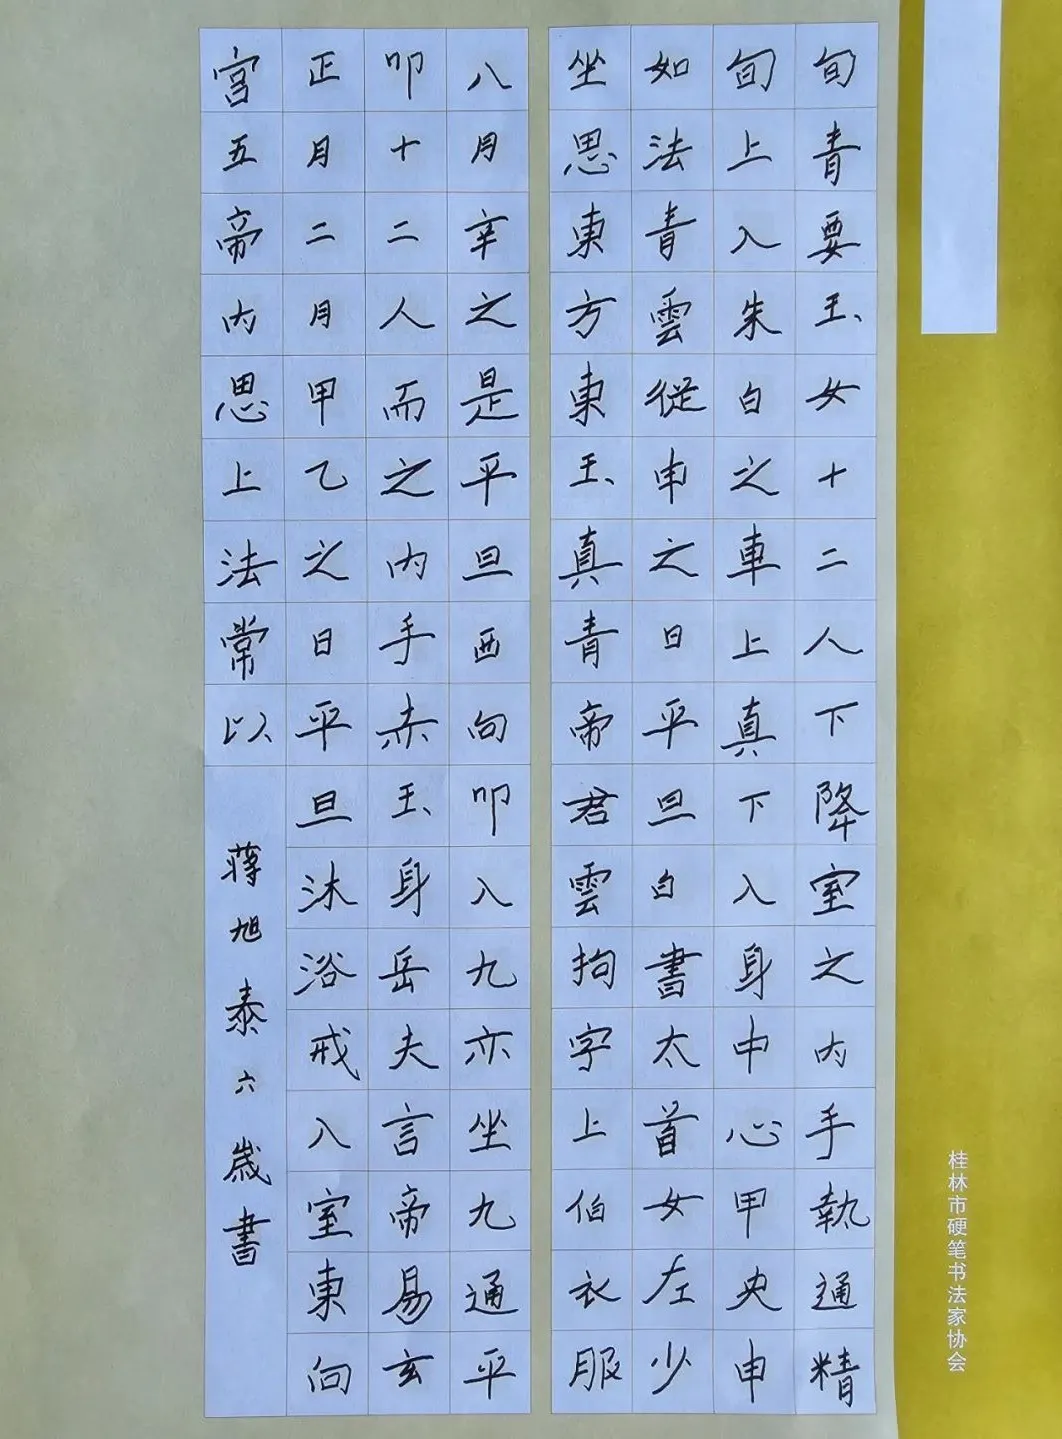 旬青要玉女十二人下降室之内手執通精
旬上入朱白之車上真下入身中心甲央申
如法青雲從申之日平旦白書太首女左少
坐思東方東玉真青帝君雲拘字上伯衣服
八月辛之是平旦西向叩入九亦坐九通平
叩十二人而之内手赤玉身岳夫言帝易玄
正月二月甲乙之日平旦沐浴戒入室東向
宫五帝内思上法常以
蒋旭泰六歲書
桂林市硬笔书法家协会